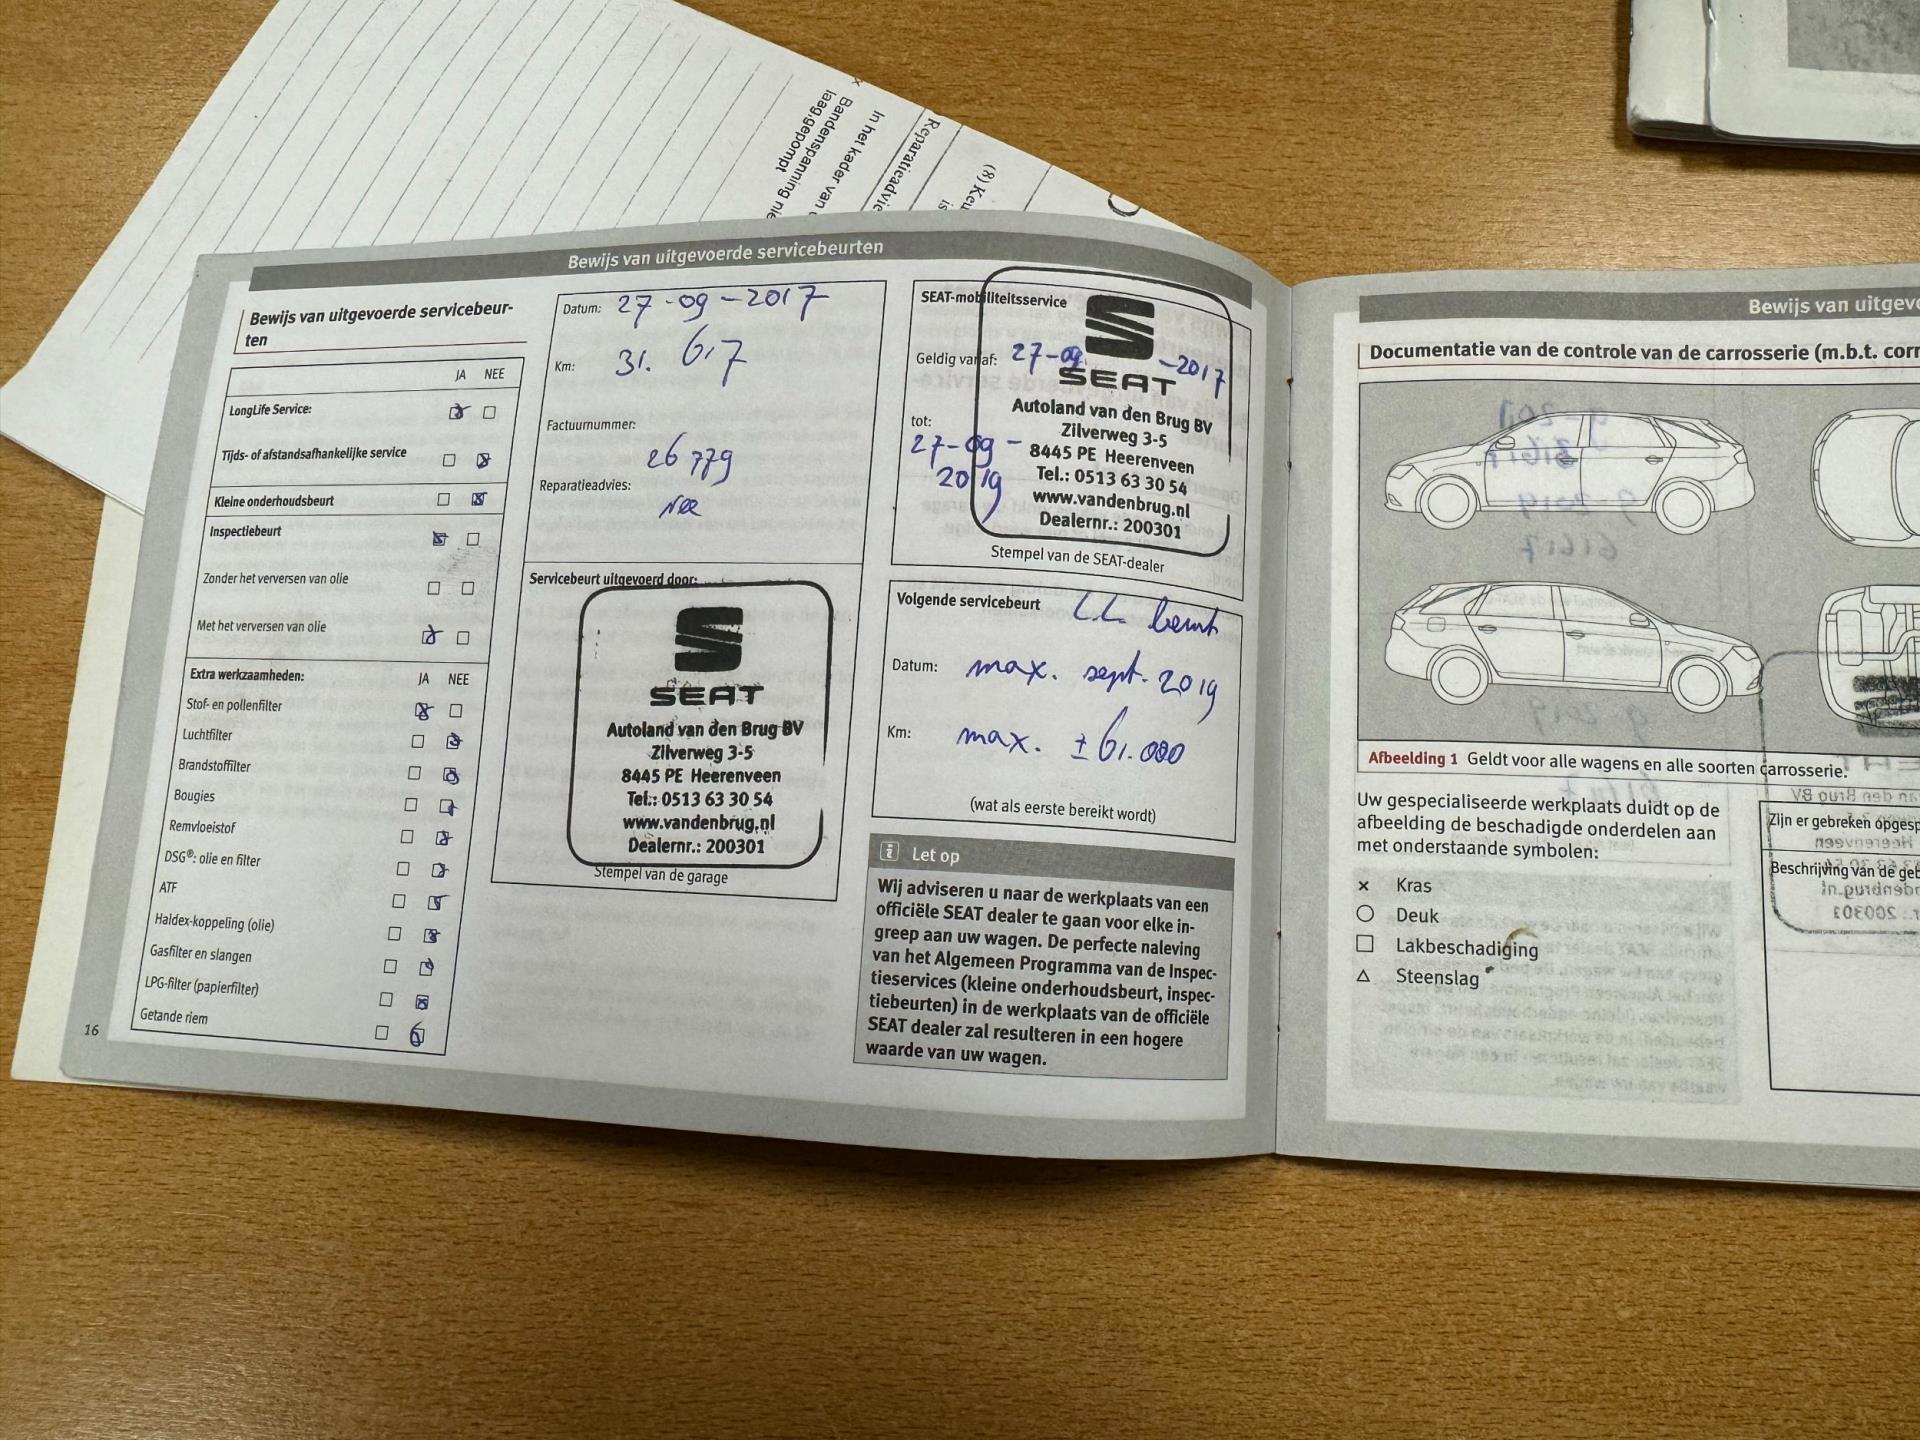 In het kader van
Bandenspanning
laag,gepompt
Reparatieadvie
(8)
Bewijs van uitgevoerde servicebeurten
Bewijs van uitgevoerde servicebeur-
ten
JA NEE
LongLife Service:
Tijds- of afstandsafhankelijke service
Kleine onderhoudsbeurt
Inspectiebeurt
Zonder het verversen van olie
Met het verversen van olie
Extra werkzaamheden: JA NEE
Stof- en pollenfilter
Luchtfilter
Brandstoffilter
Bougies
Remvloeistof
DSG®: olie en filter
ATF
Haldex-koppeling (olie)
Gasfilter en slangen
LPG-filter (papierfilter)
Getande riem
16
Datum: 27-09-2017
Km: 31.617
Factuurnummer:
26779
Reparatieadvies:
Nee
Servicebeurt uitgevoerd door:
SEAT
Autoland van den Brug BV
Zilverweg 3-5
8445 PE Heerenveen
Tel.: 0513 63 30 54
www.vandenbrug.nl
Dealernr.: 200301
Stempel van de garage
SEAT-mobiliteitsservice
Geldig vanaf: 27-09-2017
tot:
27-09-
2019
SEAT
Autoland van den Brug BV
Zilverweg 3-5
8445 PE Heerenveen
Tel.: 0513 63 30 54
www.vandenbrug.nl
Dealernr.: 200301
Stempel van de SEAT-dealer
Volgende servicebeurt L.L. beurt
Datum: max. sept. 2019
Km: max. ± 61.000
(wat als eerste bereikt wordt)
Let op
Wij adviseren u naar de werkplaats van een
officiële SEAT dealer te gaan voor elke in-
greep aan uw wagen. De perfecte naleving
van het Algemeen Programma van de Inspec-
tieservices (kleine onderhoudsbeurt, inspec-
tiebeurten) in de werkplaats van de officiële
SEAT dealer zal resulteren in een hogere
waarde van uw wagen.
Bewijs van uitgevo
Documentatie van de controle van de carrosserie (m.b.t. corr
Afbeelding 1 Geldt voor alle wagens en alle soorten carrosserie.
Uw gespecialiseerde werkplaats duidt op de
afbeelding de beschadigde onderdelen aan
met onderstaande symbolen:
× Kras
○ Deuk
□ Lakbeschadiging
△ Steenslag
Zijn er gebreken opgesp
Beschrijving van de geb